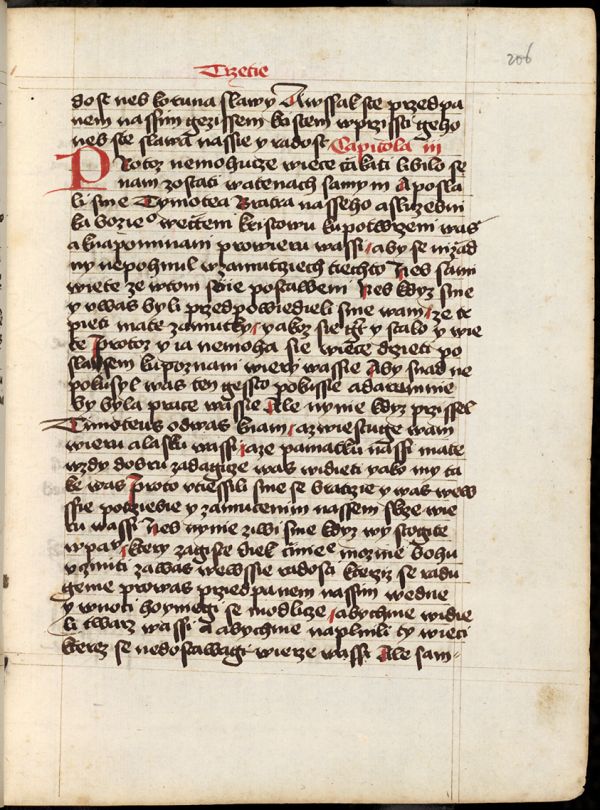 Trzetie
206
dost neb koruna slawy Awssak ste przed pa
nem nassim gezissem kristem w przissti geho
neb ste slawa nassie y radost Capitola iii
Protoz nemohucze wiecze czakati libilo se
nam zostati w atenach samym A posla
li sme Tymotea Bratra nasseho a sluzebni
ka bozieho w ecteni kristowu ku potwrzeni was
a k napominani pro wieru wassi aby se nizad
ny nepohnul w zamutciech tiechto Neb sami
wiete ze w tom sme postaweni Neb kdyz sme
y v was byli przedpowiedieli sme wam ze tr
pieti mate zamutky yakoz sie tak y stalo y wie
te Protoz y ia nemoha sie wiecze drzeti po
slal sem ku poznani wiery wassie Aby snad ne
pokusyl was ten gessto pokussie a daremnie
by byla prace wassie Ale nynie kdyz przissel
Timoteus od was k nam a zwiestuge wam
wieru a lasku wassi a ze pamatku nassi mate
wzdy dobru zadagicze was widieti yako my ta
ke was Proto vtiessili sme se bratrzie y was wew
ssie potrzebie y zamuceni nassem skrze wie
ru wassi Neb nynie ziwi sme kdyz wy stogite
w panu ktery zagiste diek czinie mozme bohu
vcziniti za was we wssie radosti kterziz se radu
geme pro was przed panem nassim we dne
y w noci hoyniegi se modlicze abychme widie
li twarz wassi A abychme naplnili ty wieci
kterez se nedostawagi wierze wassi Ale sam-